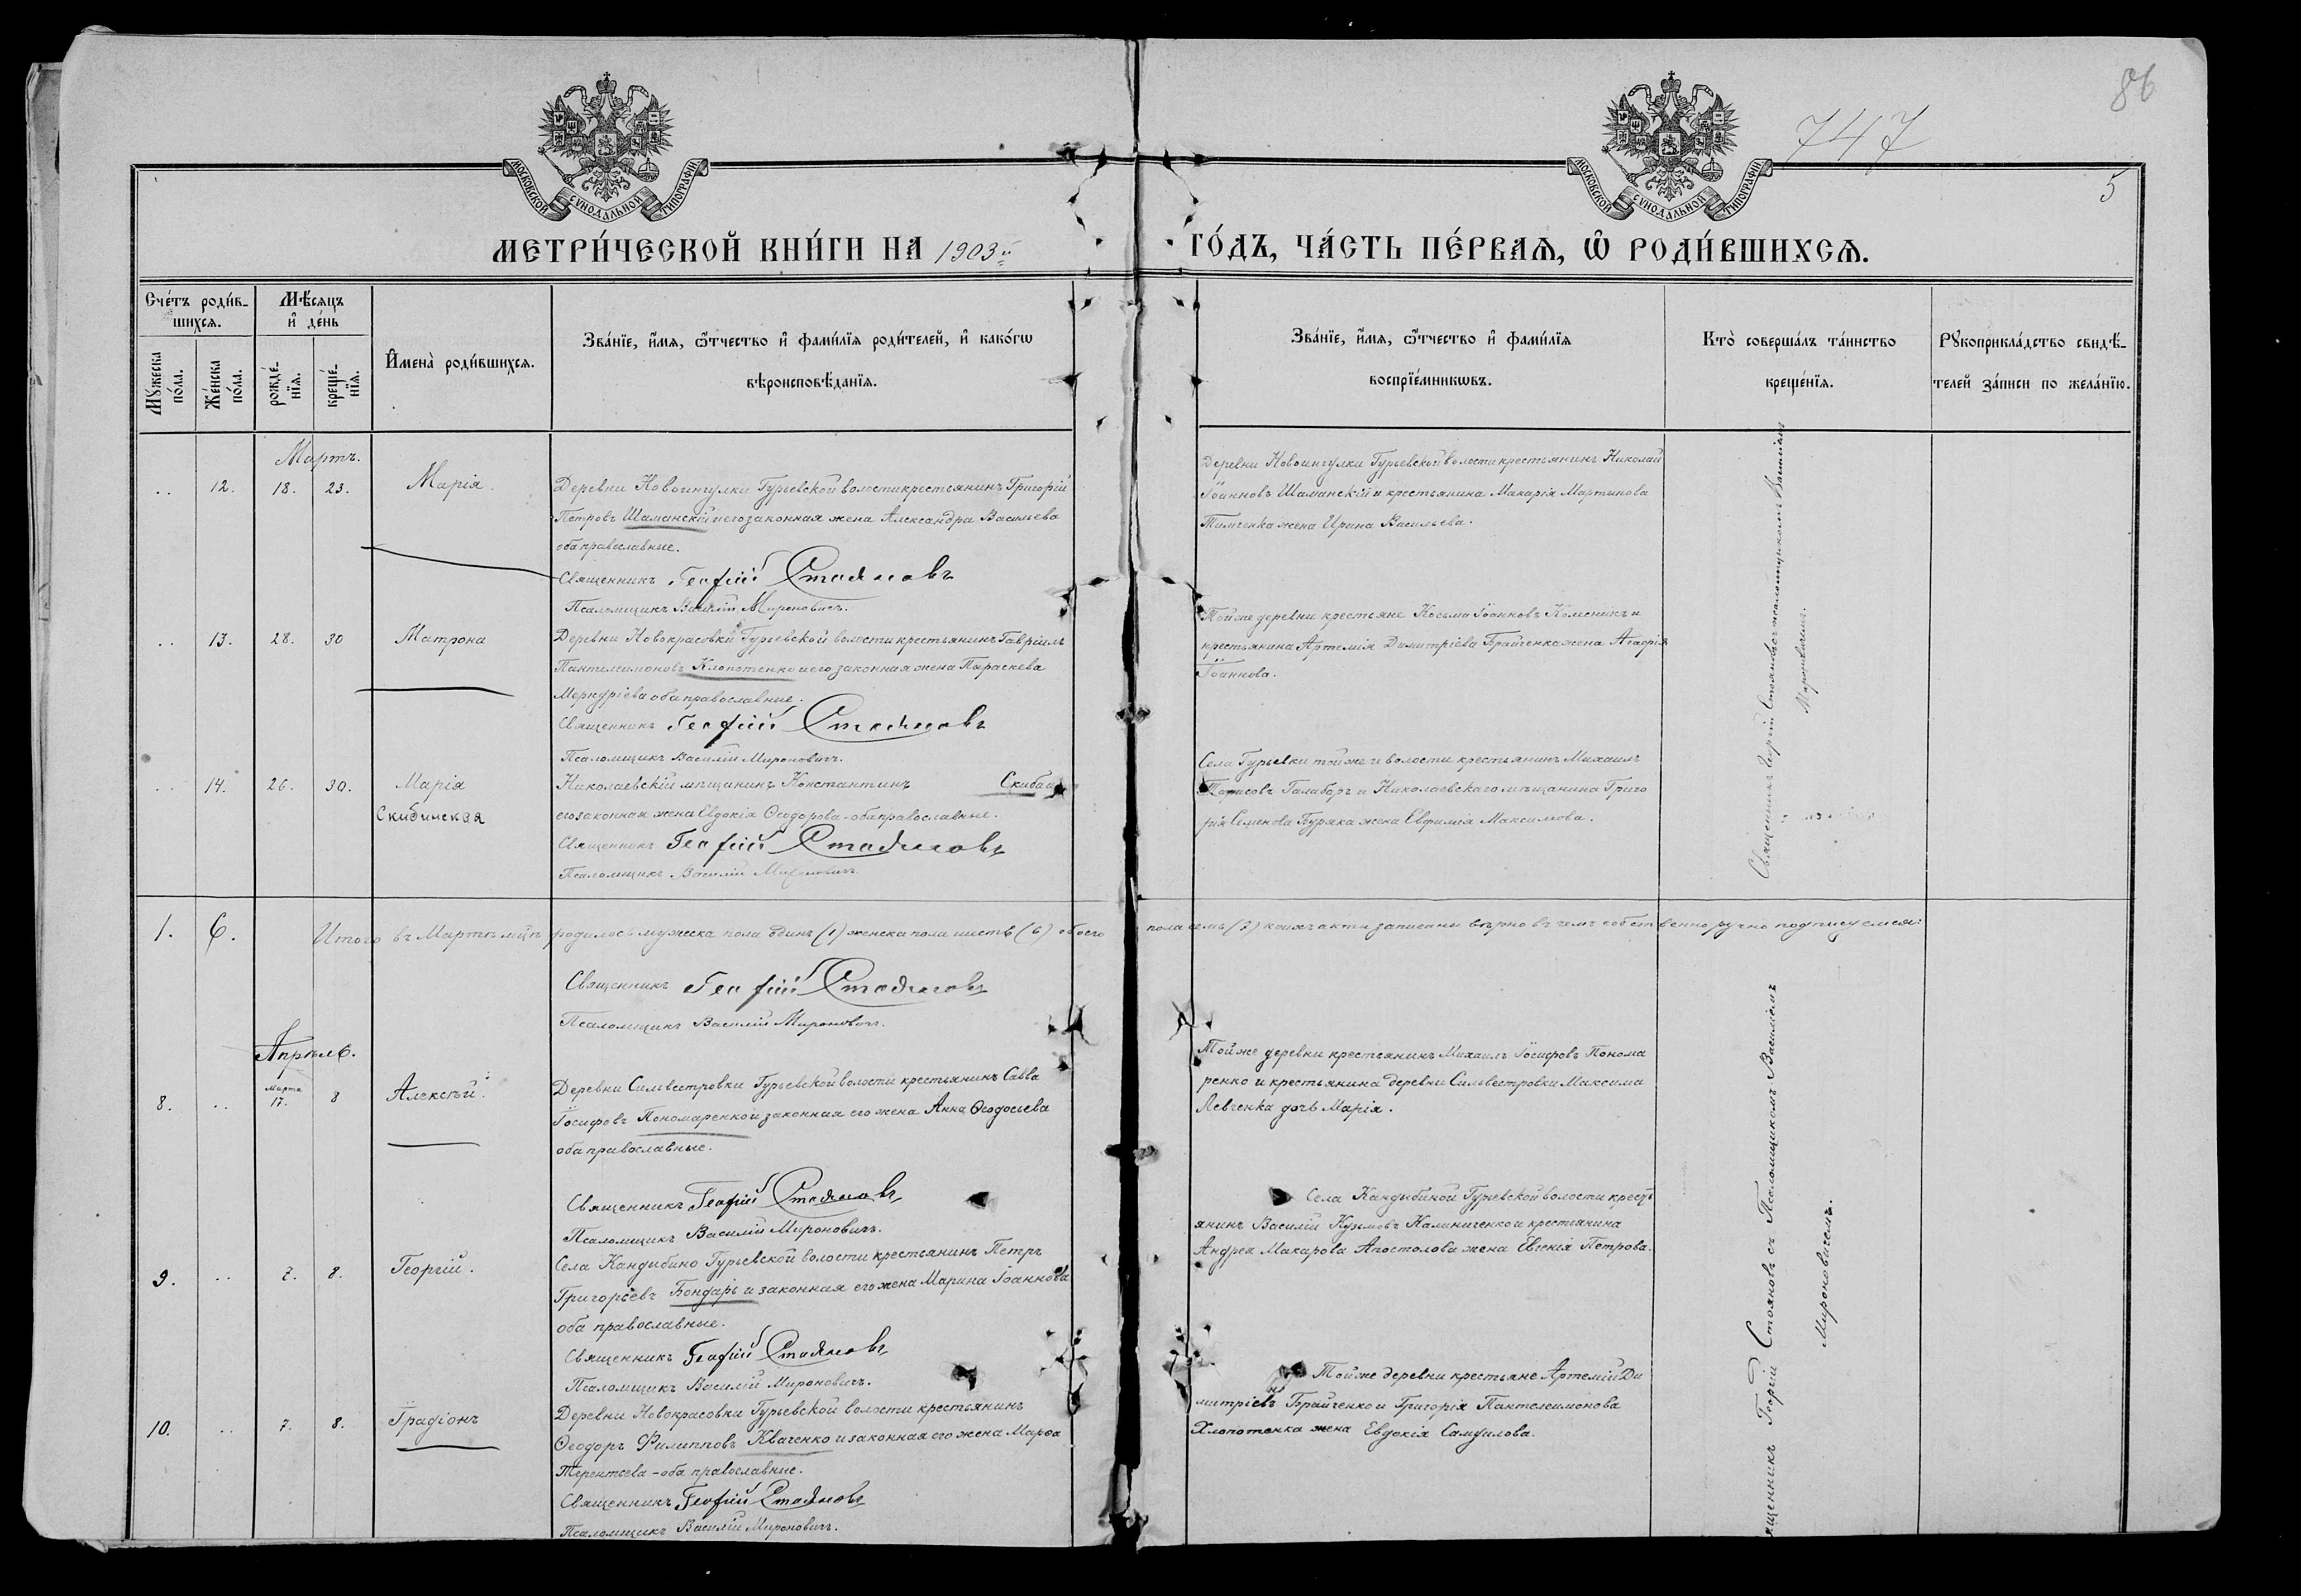 86
747
5
МОСКОВСКОЙ СѴНОДАЛЬНОЙ ТИПОГРАФІИ
МОСКОВСКОЙ СѴНОДАЛЬНОЙ ТИПОГРАФІИ
МЕТРИ́ЧЕСКОЙ КНИ́ГИ НА 1903й ГО́ДЪ, ЧА́СТЬ ПЕ́РВАѦ, Ѽ РОДИ́ВШИХСѦ.
Сче́тъ роди́в-
шихсѧ.
Мѣ́сѧцъ
и҆ де́нь
И҆мена̀ роди́вшихсѧ.
Зва́нїе, и҆́мѧ, ѻ҆́тчество и҆ фами́лїѧ роди́телей, и҆ како́гѡ
вѣроисповѣ́данїѧ.
Мꙋжеска
по́ла.
Же́нска
по́ла.
рожде́-
нїѧ.
креще́-
нїѧ.
Зва́нїе, и҆́мѧ, ѻ҆́тчество и҆ фами́лїѧ
воспрїе́мникѡвъ.
Кто̀ соверша́лъ та́инство
креще́нїѧ.
Рꙋкоприкла́дство свидѣ́-
телей за́писи по жела́нїю.
Мартъ.
.. 12. 18. 23. Марія.
Деревни Новоингулки Гурьевской волости крестьянинъ Григорій
Петровъ Шаманскій и его законная жена Александра Васильева
оба православные.
Священникъ Георгій Стояновъ
Псаломщикъ Василій Мироновичъ.
Деревни Новоингулки Гурьевской волости крестьянинъ Николай
Іоанновъ Шаманскій и крестьянина Макарія Мартинова
Тимченка жена Ирина Васильева.
.. 13. 28. 30 Матрона
Деревни Новокрасовки Гурьевской волости крестьянинъ Гавріилъ
Пантелеимоновъ Клопотенко и его законная жена Параскева
Меркуріева оба православные.
Священникъ Георгій Стояновъ
Псаломщикъ Василій Мироновичъ.
Той же деревни крестьяне Косьма Іоанновъ и
крестьянина Артемія Димитріева Брайченка жена Агафія
Іоаннова.
.. 14. 26. 30. Марія
Скибинская
Николаевскій мѣщанинъ Константинъ
его законная жена Евдокія Ѳеодорова - оба православные.
Священникъ Георгій Стояновъ
Псаломщикъ Василій Мироновичъ
Села Гурьевки той же и волости крестьянинъ Михаилъ
и Николаевскаго мѣщанина Григо
рія Семенова Буряка жена Евфимія Максимова.
Священникъ Георгій Стояновъ съ псаломщикомъ Василіемъ
Мироновичемъ.
1. 6. Итого въ Мартѣ м-цѣ родилось мужеска пола одинъ (1) женска пола шесть (6) обоего пола семь (7) коихъ акты записаны вѣрно въ чемъ собственноручно подписуемся:
Священникъ Георгій Стояновъ
Псаломщикъ Василій Мироновичъ.
Апрѣль.
8. .. Марта
17. 8 Алексѣй.
Деревни Сильвестровки Гурьевской волости крестьянинъ Савва
Іосифовъ Пономаренко и законная его жена Анна Ѳеодосьева
оба православные.
Священникъ Георгій Стояновъ
Псаломщикъ Василій Мироновичъ.
Той же деревни крестьянинъ Михаилъ Іосифовъ Понома
ренко и крестьянина деревни Сильвестровки Максима
Левченка дочь Марія.
9. .. 7. 8. Георгій.
Села Кандыбино Гурьевской волости крестьянинъ Петръ
Григорьевъ Бондарь и законная его жена Марина Іоаннова
оба православные.
Священникъ Георгій Стояновъ
Псаломщикъ Василій Мироновичъ.
Села Кандыбиной Гурьевской волости крестъ
янинъ Василій Кузьмовъ Калиниченко и крестьянина
Андрея Макарова Апостолова жена Евгенія Петрова.
10. .. 7. 8. Іродіонъ
Деревни Новокрасовки Гурьевской волости крестьянинъ
Ѳеодоръ Филипповъ Кваченко и законная его жена Марѳа
Терентьева - оба православные.
Священникъ Георгій Стояновъ
Псаломщикъ Василій Мироновичъ.
Той же деревни крестьяне Артемій Ди
митріевъ Брайченко и Григорія Пантелеимонова
Хлопотенка жена Евдокія Самуилова.
Священникъ Георгій Стояновъ съ Псаломщикомъ Василіемъ
Мироновичемъ.